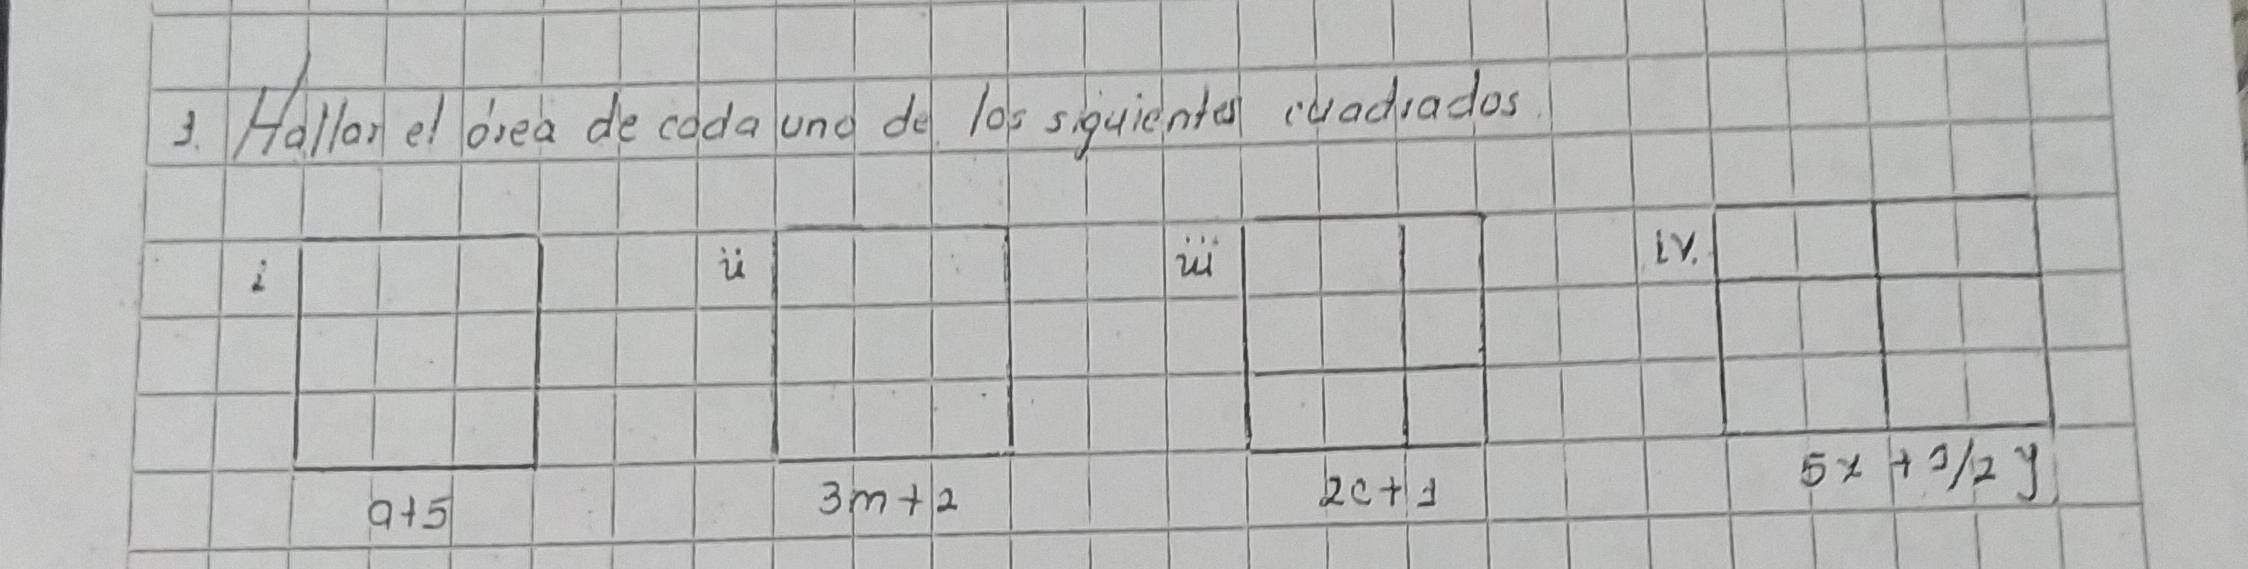 1. Hallar el área de cada uno de los siguientes cuadrados.
i ii iii iv.
a+5 3m+2 2c+1 5x+1/2y